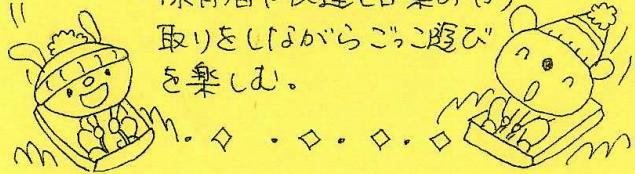 保育者や友達と言葉のやり
取りをしながらごっこ遊び
を楽しむ。